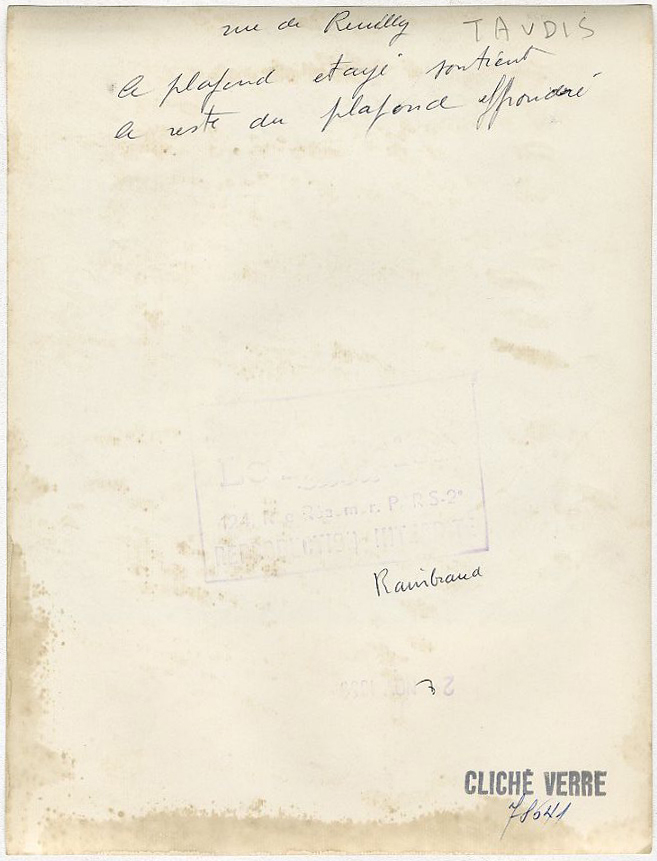 rue de Reuilly
TAUDIS
le plafond etayé soutient
le reste du plafond effondré
124, Rue Réaumur, PARIS-2e
Rambraud
7
CLICHÉ VERRE